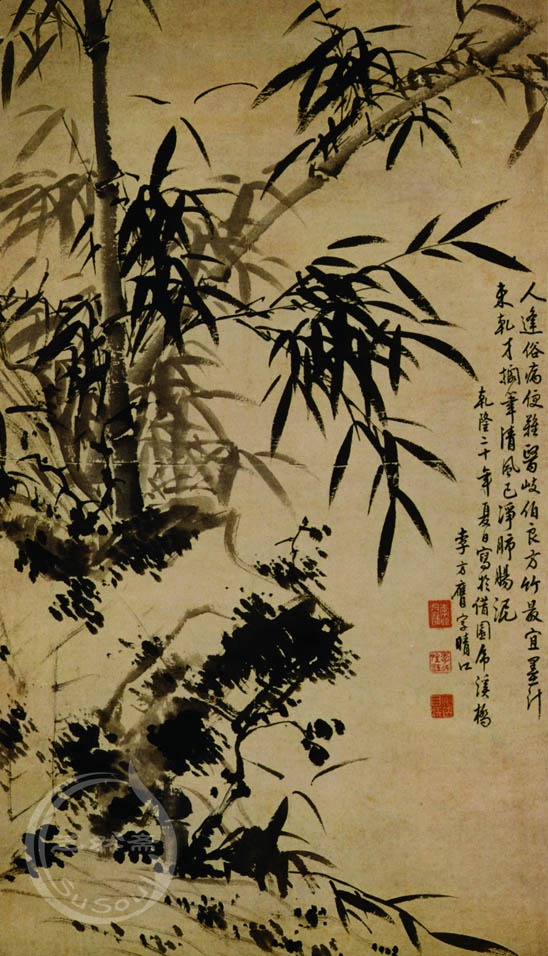 人逢俗病便難醫岐伯良方竹最宜墨汁
未乾才擱筆清風已淨肺腸泥
乾隆二十年夏日寫於借園虎溪橋
李方膺字晴江
SuSou